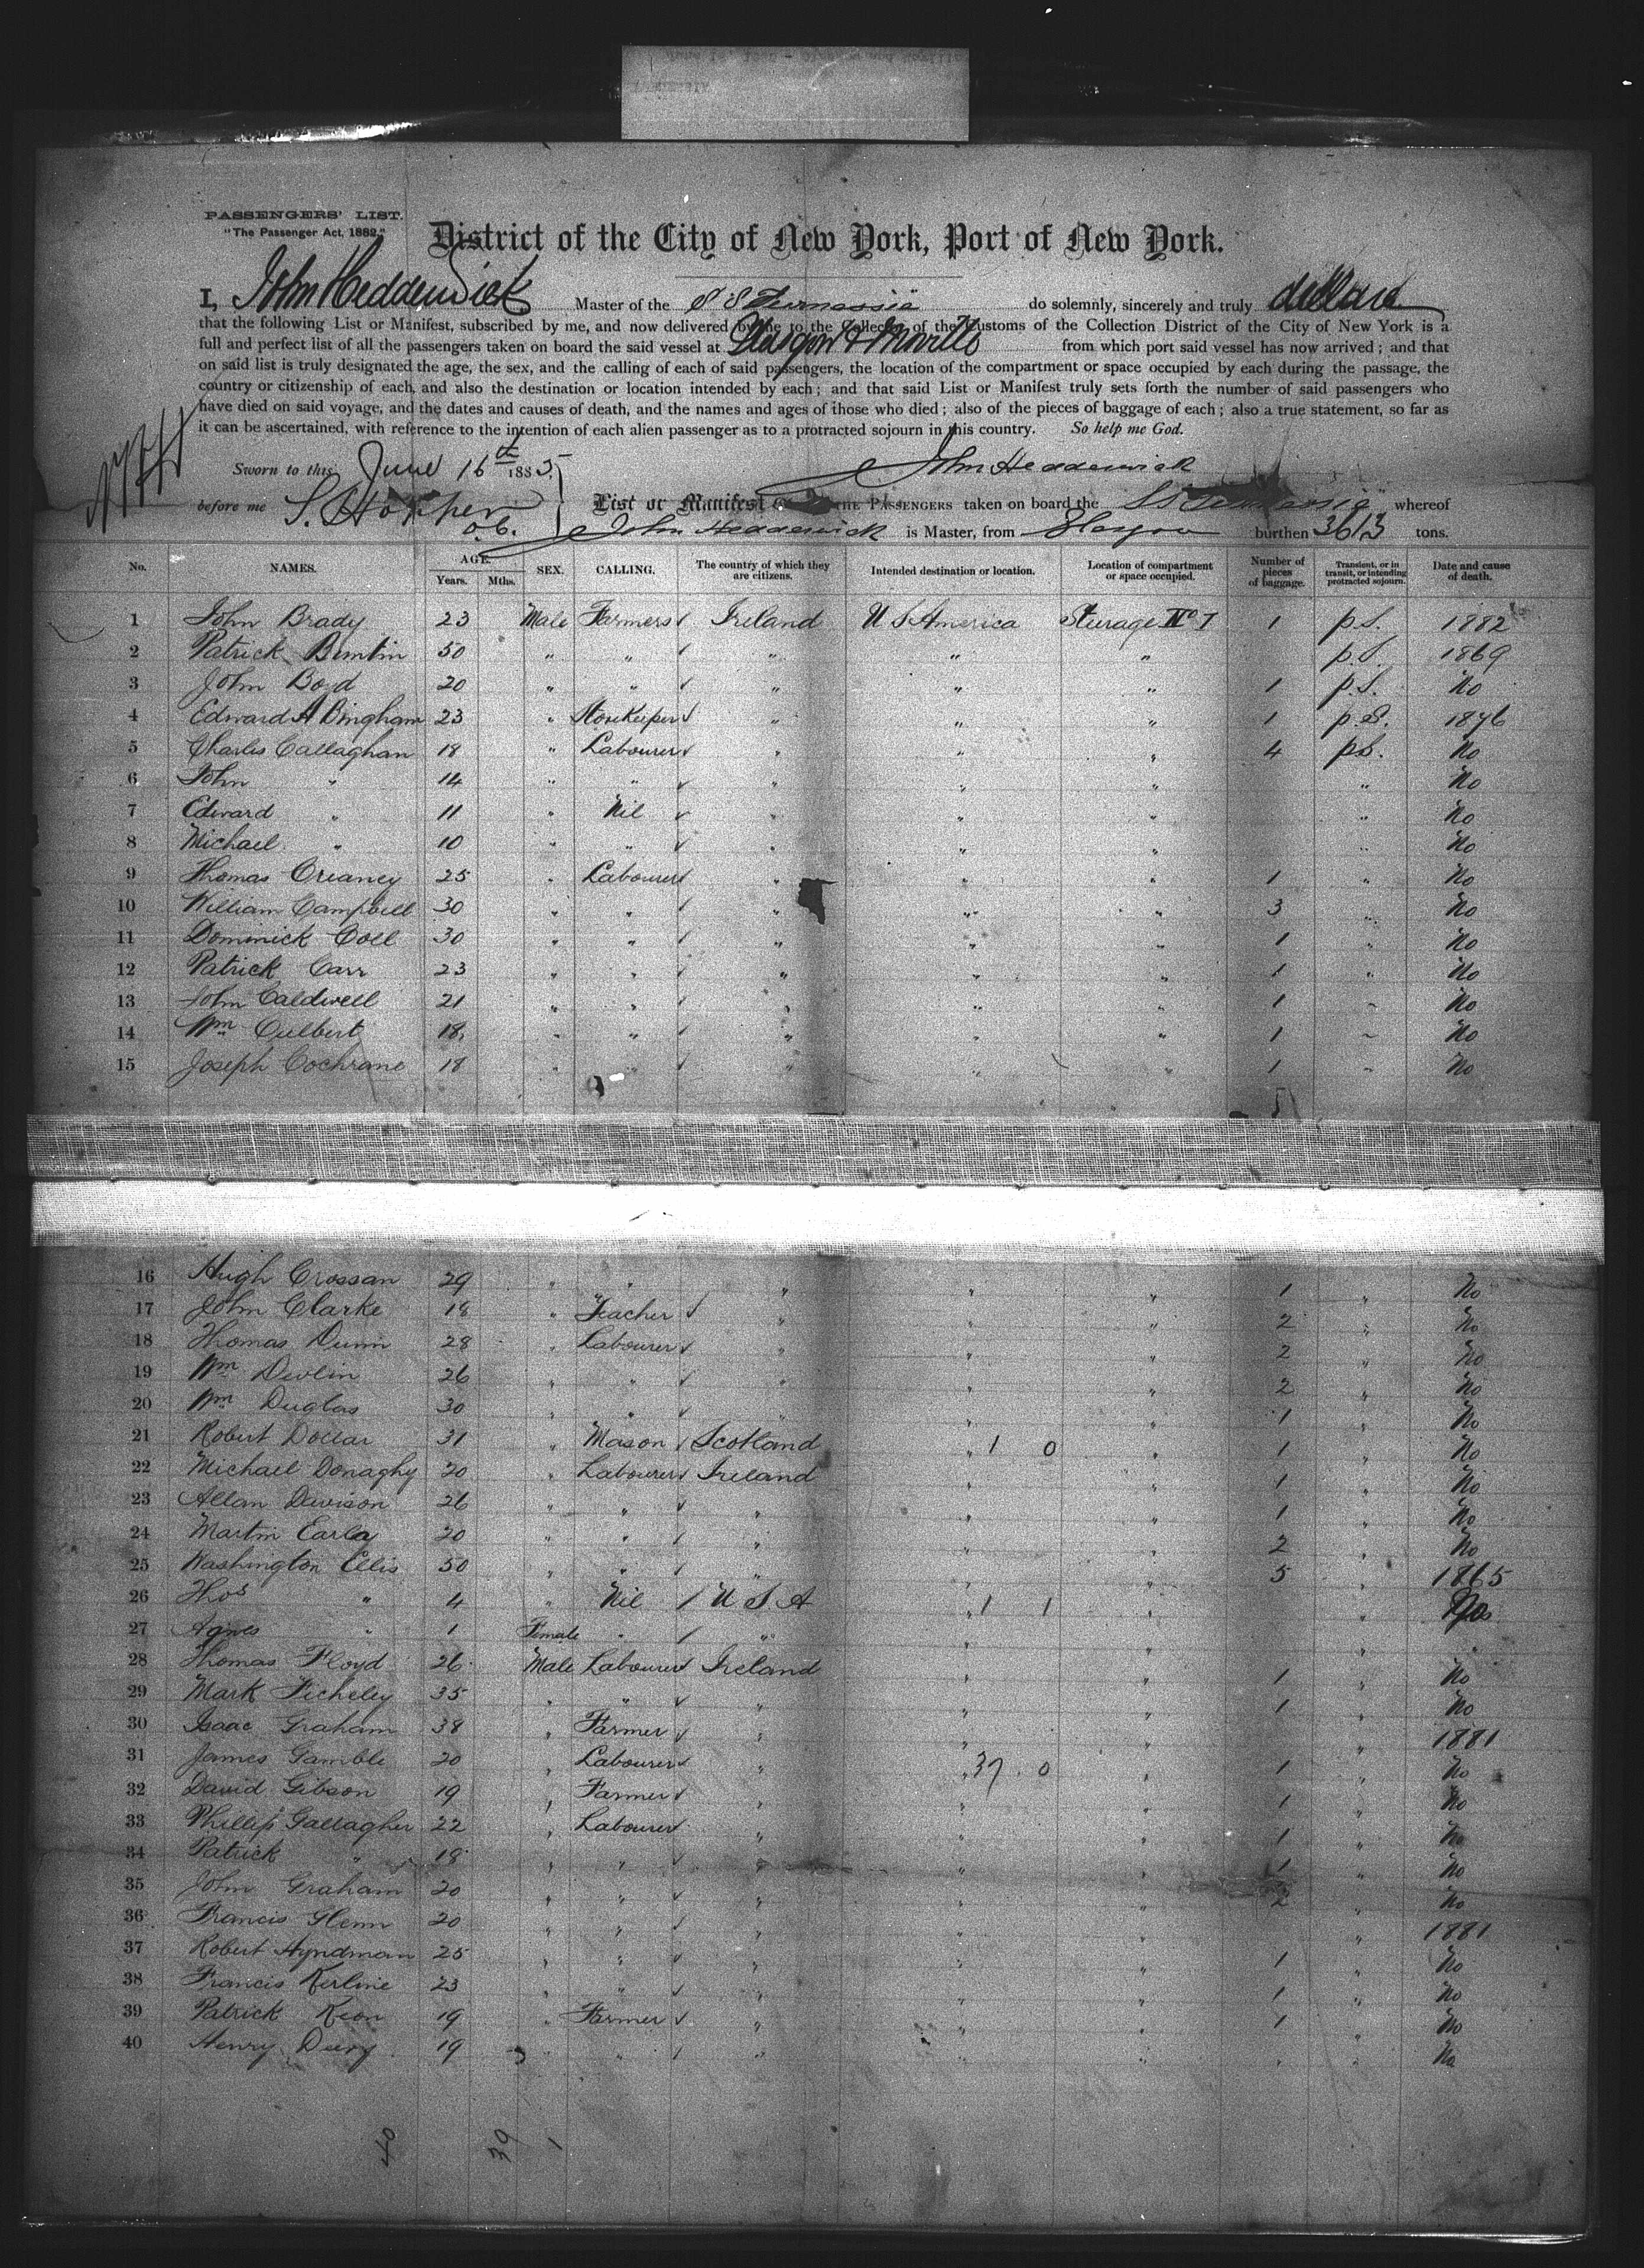 PASSENGERS' LIST.
"The Passenger Act, 1882."
District of the City of New York, Port of New York.
I, John Hedderwick Master of the S S Furnessia do solemnly, sincerely and truly declare
that the following List or Manifest, subscribed by me, and now delivered by me to the Collector of the Customs of the Collection District of the City of New York is a
full and perfect list of all the passengers taken on board the said vessel at Glasgow & Moville from which port said vessel has now arrived; and that
on said list is truly designated the age, the sex, and the calling of each of said passengers, the location of the compartment or space occupied by each during the passage, the
country or citizenship of each, and also the destination or location intended by each; and that said List or Manifest truly sets forth the number of said passengers who
have died on said voyage, and the dates and causes of death, and the names and ages of those who died; also of the pieces of baggage of each; also a true statement, so far as
it can be ascertained, with reference to the intention of each alien passenger as to a protracted sojourn in this country. So help me God.
Sworn to this June 16th 1885, John Hedderwick
before me S. Hopper List or Manifest THE PASSENGERS taken on board the SS Furnessia whereof
John Hedderwick is Master, from Glasgow burthen 3613 tons.
No. NAMES. AGE. Years. Mths. SEX. CALLING. The country of which they are citizens. Intended destination or location. Location of compartment or space occupied. Number of pieces of baggage. Transient, or in transit, or intending protracted sojourn. Date and cause of death.
1 John Brady 23 Male Farmers Ireland U S America Steerage No I 1 p.S. 1882
2 Patrick 50 " " " " " p.S. 1869
3 John Boyd 20 " " " " " 1 p.S. No
4 Edward A Bingham 23 " Storekeeper " " " 1 p.S. 1876
5 Charles Callaghan 18 " Labourer " " " 4 p.S. No
6 John " 14 " " " " " " No
7 Edward " 11 " Nil " " " " No
8 Michael " 10 " " " " " " No
9 Thomas Creaney 25 " Labourer " " " 1 " No
10 William Campbell 30 " " " " " 3 " No
11 Dominick Coll 30 " " " " " 1 " No
12 Patrick Carr 23 " " " " " 1 " No
13 John Caldwell 21 " " " " " 1 " No
14 Wm Culbert 18 " " " " " 1 " No
15 Joseph Cochrane 18 " " " " " 1 " No
16 Hugh Crossan 29 " " " " " 1 " No
17 John Clarke 18 " Teacher " " " 2 " No
18 Thomas Dunn 28 " Labourer " " " 2 " No
19 Wm Devlin 26 " " " " " 2 " No
20 Wm Duglas 30 " " " " " 1 " No
21 Robert Dollar 31 " Mason Scotland " 1 0 " 1 " No
22 Michael Donaghy 20 " Labourer Ireland " " 1 " No
23 Allan Davison 26 " " " " " 1 " No
24 Martin Earley 20 " " " " " 2 " No
25 Washington Ellis 50 " " " " " 5 " 1865
26 Thos " 4 " Nil U S A " 1 1 " "
27 Agnes " 1 Female " " " " " "
28 Thomas Floyd 26 Male Labourer Ireland " " 1 " No
29 Mark 35 " " " " " 1 " No
30 Isaac Graham 38 " Farmer " " " " 1881
31 James Gamble 20 " Labourer " " 37 0 " 1 " No
32 David Gibson 19 " Farmer " " " 1 " No
33 Phillip Gallagher 22 " Labourer " " " 1 " No
34 Patrick " 18 " " " " " 1 " No
35 John Graham 20 " " " " " 2 " No
36 Francis Glenn 20 " " " " " " 1881
37 Robert Hyndman 25 " " " " " 1 " No
38 Francis Kerline 23 " " " " " 1 " No
39 Patrick Keon 19 " Farmer " " " 1 " No
40 Henry 19 " " " " " " " No
40 39 1